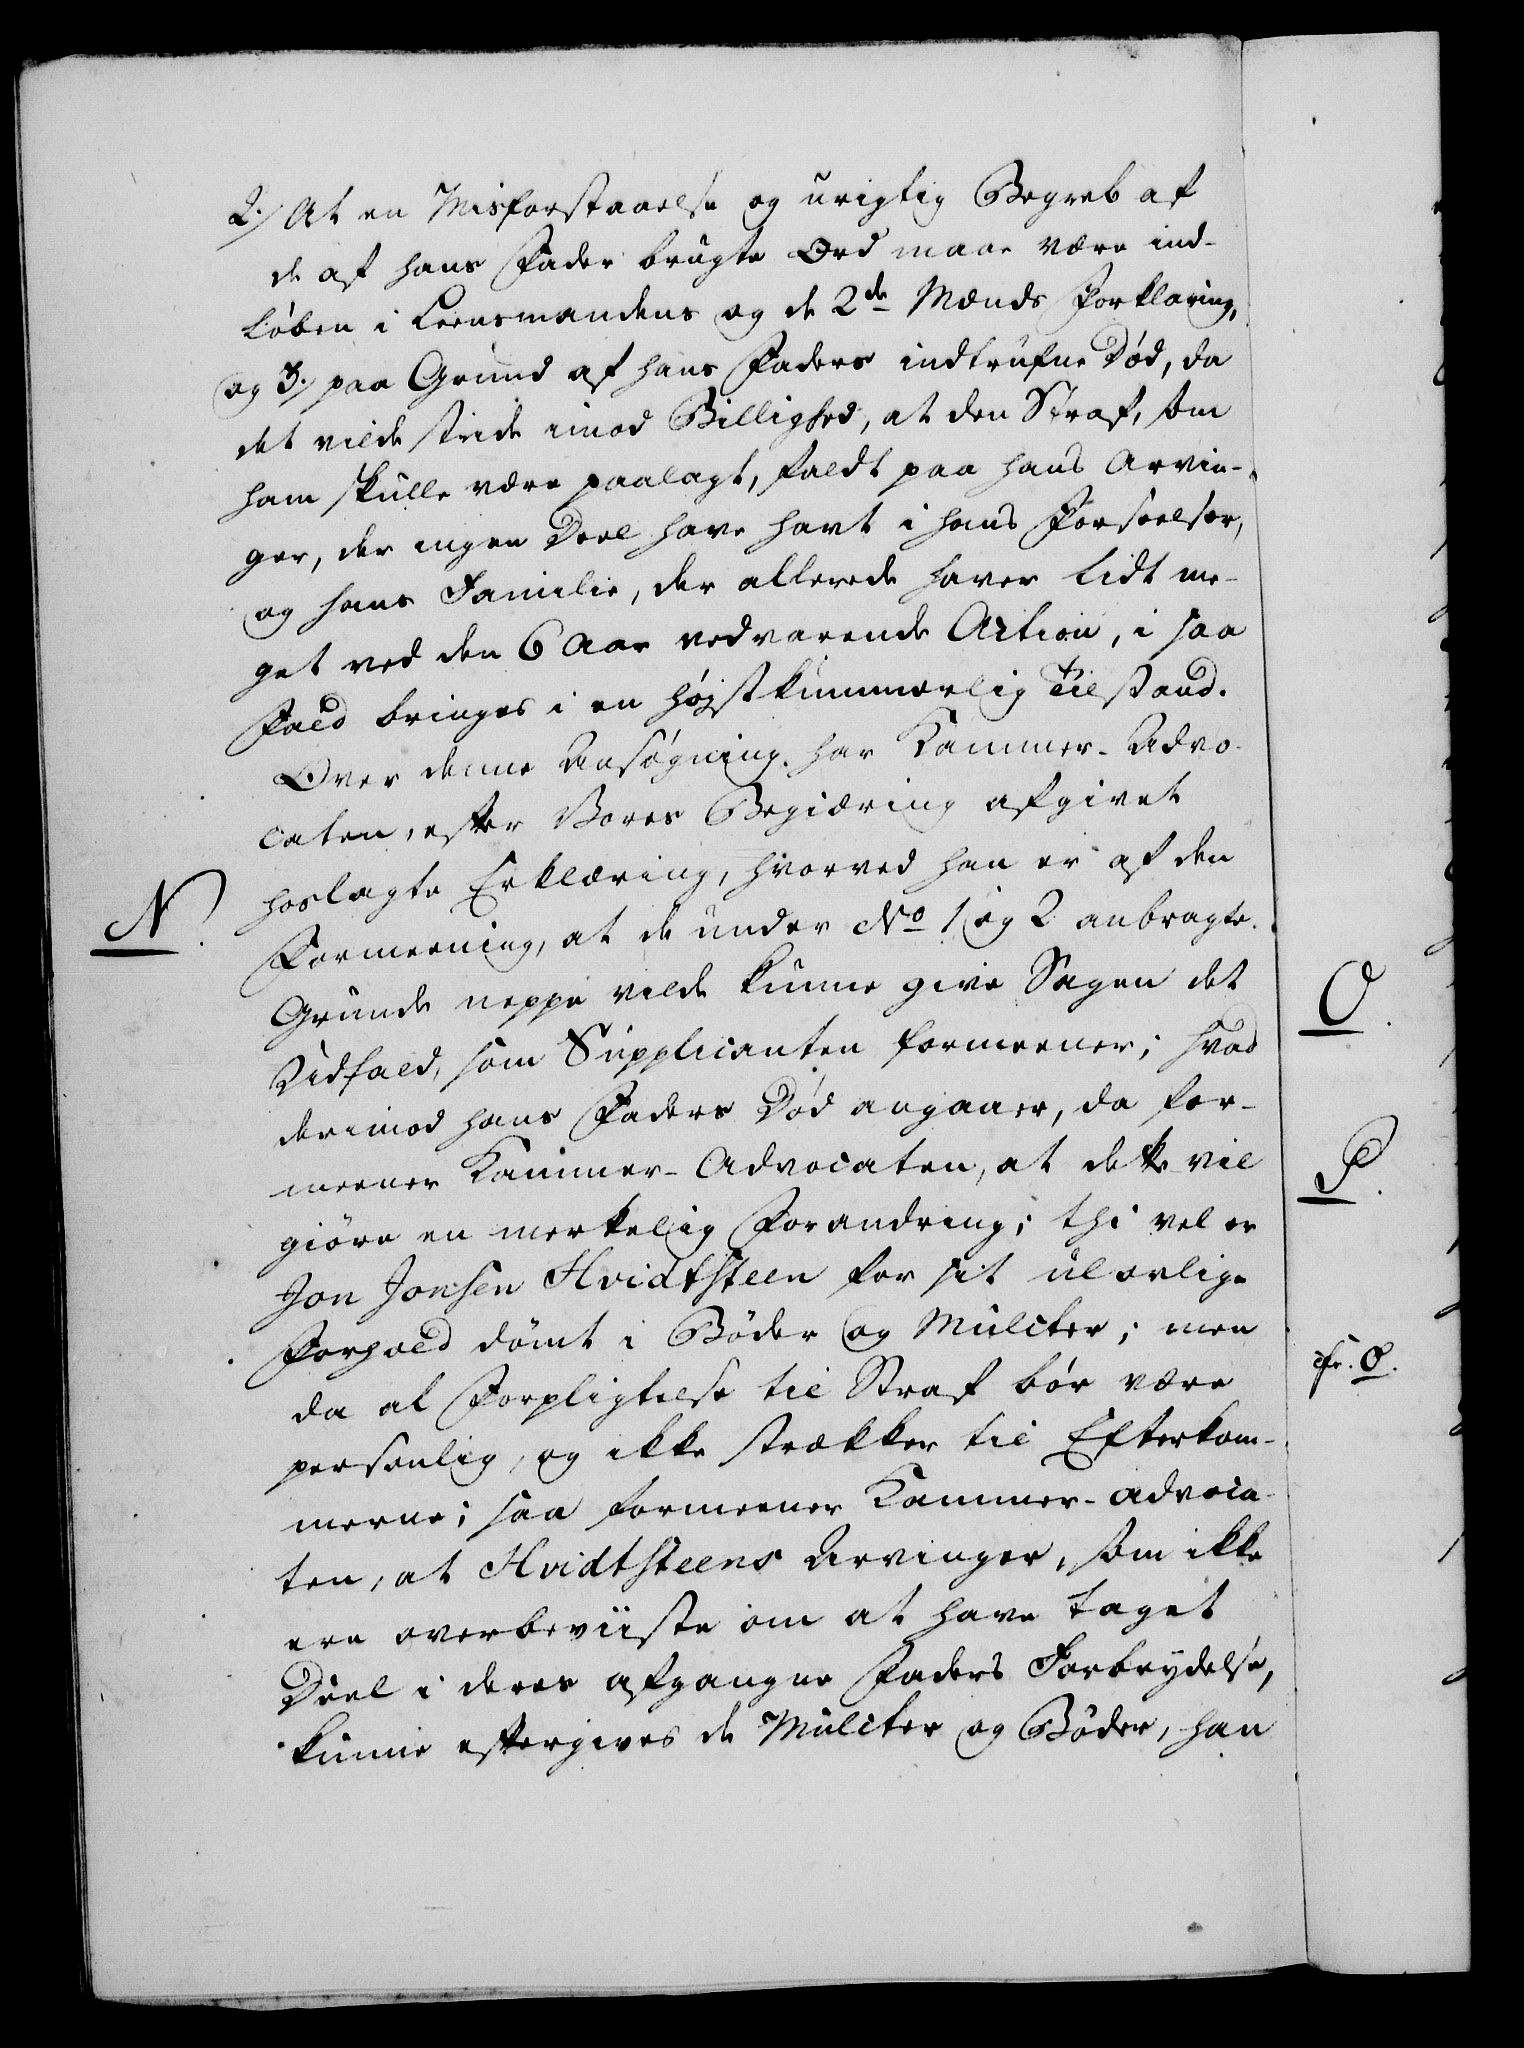 2./ At en Misforstaaelse og urigtig Begreb af
de af hans Fader brugte Ord maae være ind-
løben i Leensmandens og de 2de Mænds Forklaring,
og 3./ paa Grund af hans Faders indtrufne Død, da
det vilde stride imod Billighed, at den Straf, som
ham skulle være paalagt, faldt paa hans Arvin-
ger, der ingen Deel have havt i hans Forseelser,
og hans Familie, der allerede haver lidt me-
get ved den 6 Aar vedvarende Action, i saa
Fald bringes i en højstkummerlig Tilstand.
Over denne Ansøgning har Kammer-Advo-
caten, efter Vores Begiæring afgivet
N.
hoslagte Erklæring, hvorved han er af den
Formeening, at de under No 1 og 2 anbragte
Grunde neppe vilde kunne give Sagen det
O.
Udfald, som Supplicanten formeener; hvad
derimod hans Faders Død angaaer, da for-
meener Kammer-Advocaten, at dette vil
P.
giøre en merkelig Forandring; thi vel er
Jon Jonsen Hvidtsteen for sit ulovlige
Forhold dömt i Böder og Mulcter; men
cfr. O.
da al Forpligtelse til Straf bör være
personlig, og ikke strækker til Efterkom-
merne; saa formeener Kammer-Advoca-
ten, at Hvidtsteens Arvinger, som ikke
ere overbeviiste om at have taget
Deel i deres afgangne Faders Forbrydelse,
kunne eftergives de Mulcter og Böder, han